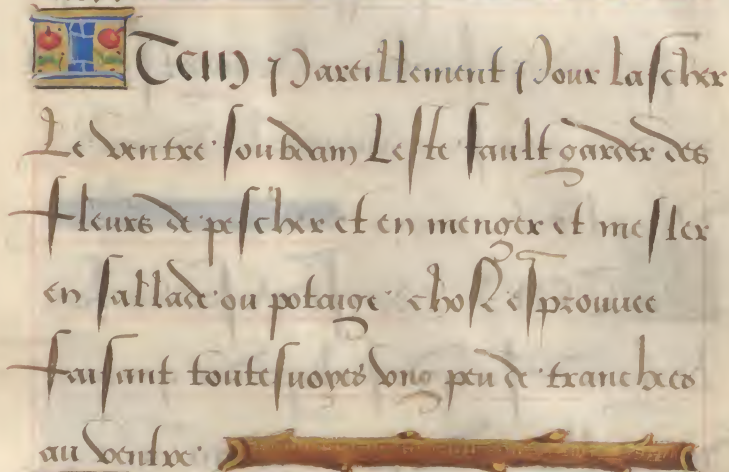 Item Pareillement Pour lascher
Le ventre soubdain Leste fault garder des
fleurs de pescher et en menger et mesler
en sallade ou potaige chose esprouuee
faisant toutesuoyes vng peu de tranchees
au ventre